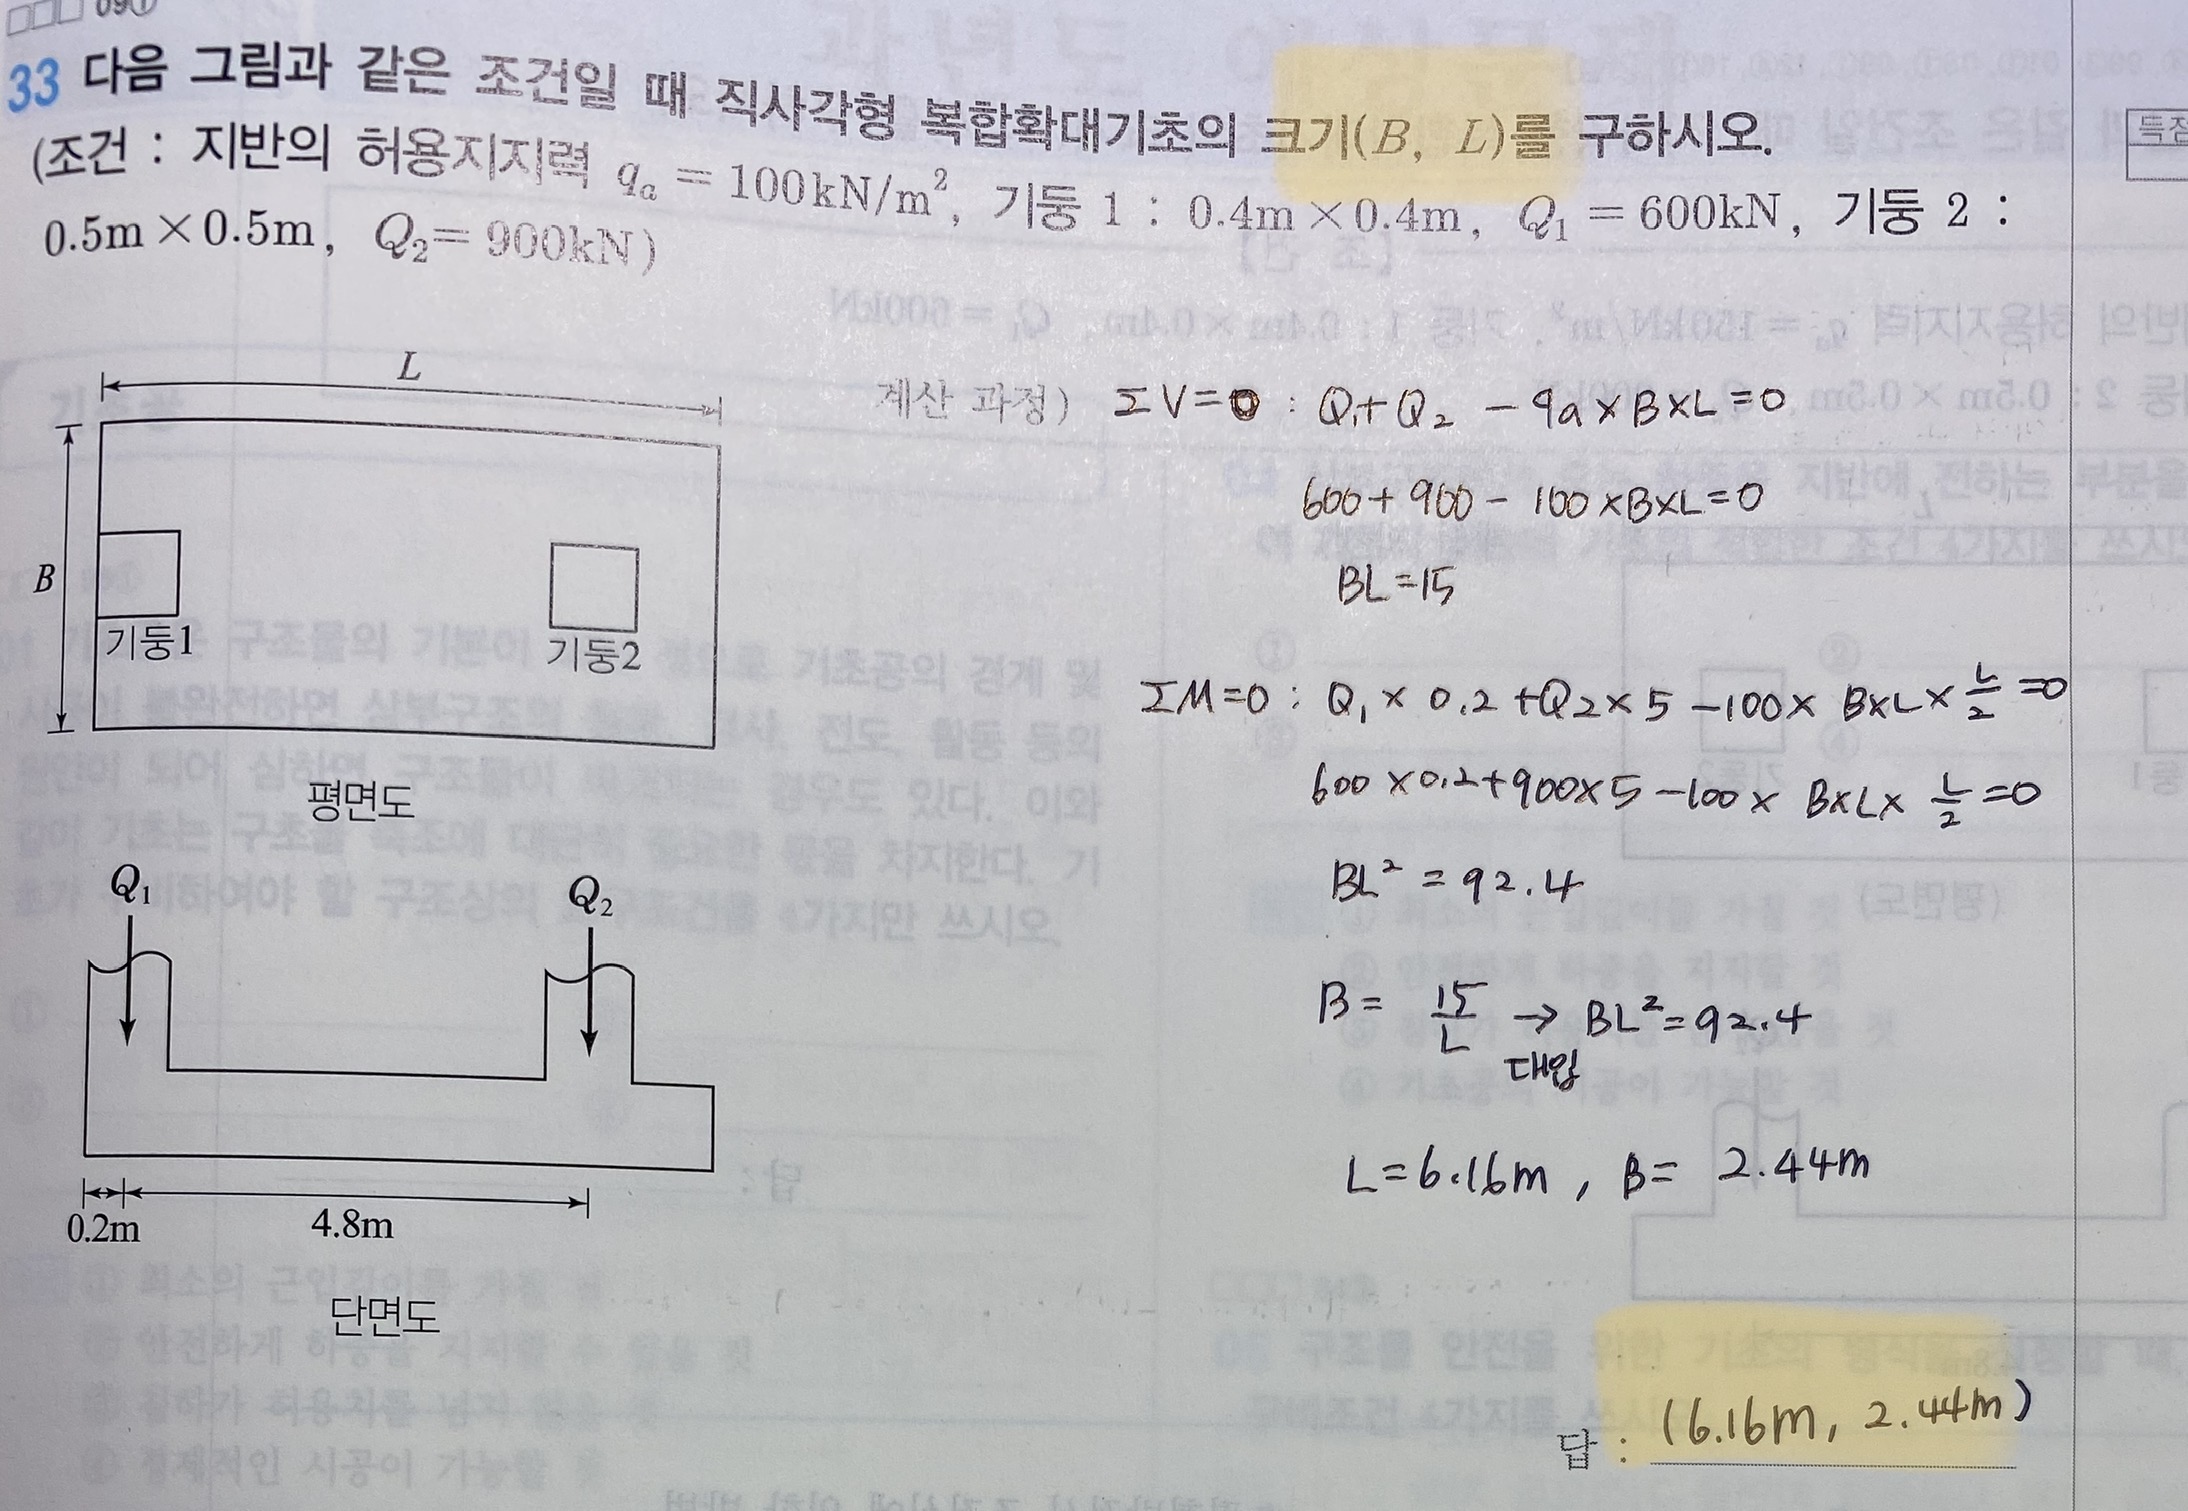 09①
33 다음 그림과 같은 조건일 때 직사각형 복합확대기초의 크기(B, L)를 구하시오.
(조건 : 지반의 허용지지력 qₐ = 100kN/m², 기둥 1 : 0.4m×0.4m, Q₁ = 600kN, 기둥 2 :
0.5m×0.5m, Q₂= 900kN)
득점
L
B
기둥1
기둥2
평면도
Q₁
Q₂
0.2m
4.8m
단면도
계산 과정) ΣV=0 : Q₁+Q₂ - qa×B×L=0
600+900- 100×B×L=0
BL=15
ΣM=0 : Q₁×0.2+Q₂×5-100× B×L×L/2=0
600×0.2+900×5-100× B×L× L/2=0
BL² = 92.4
B= 15/L → BL²=92.4
대입
L=6.16m, B= 2.44m
답 : (6.16m, 2.44m)